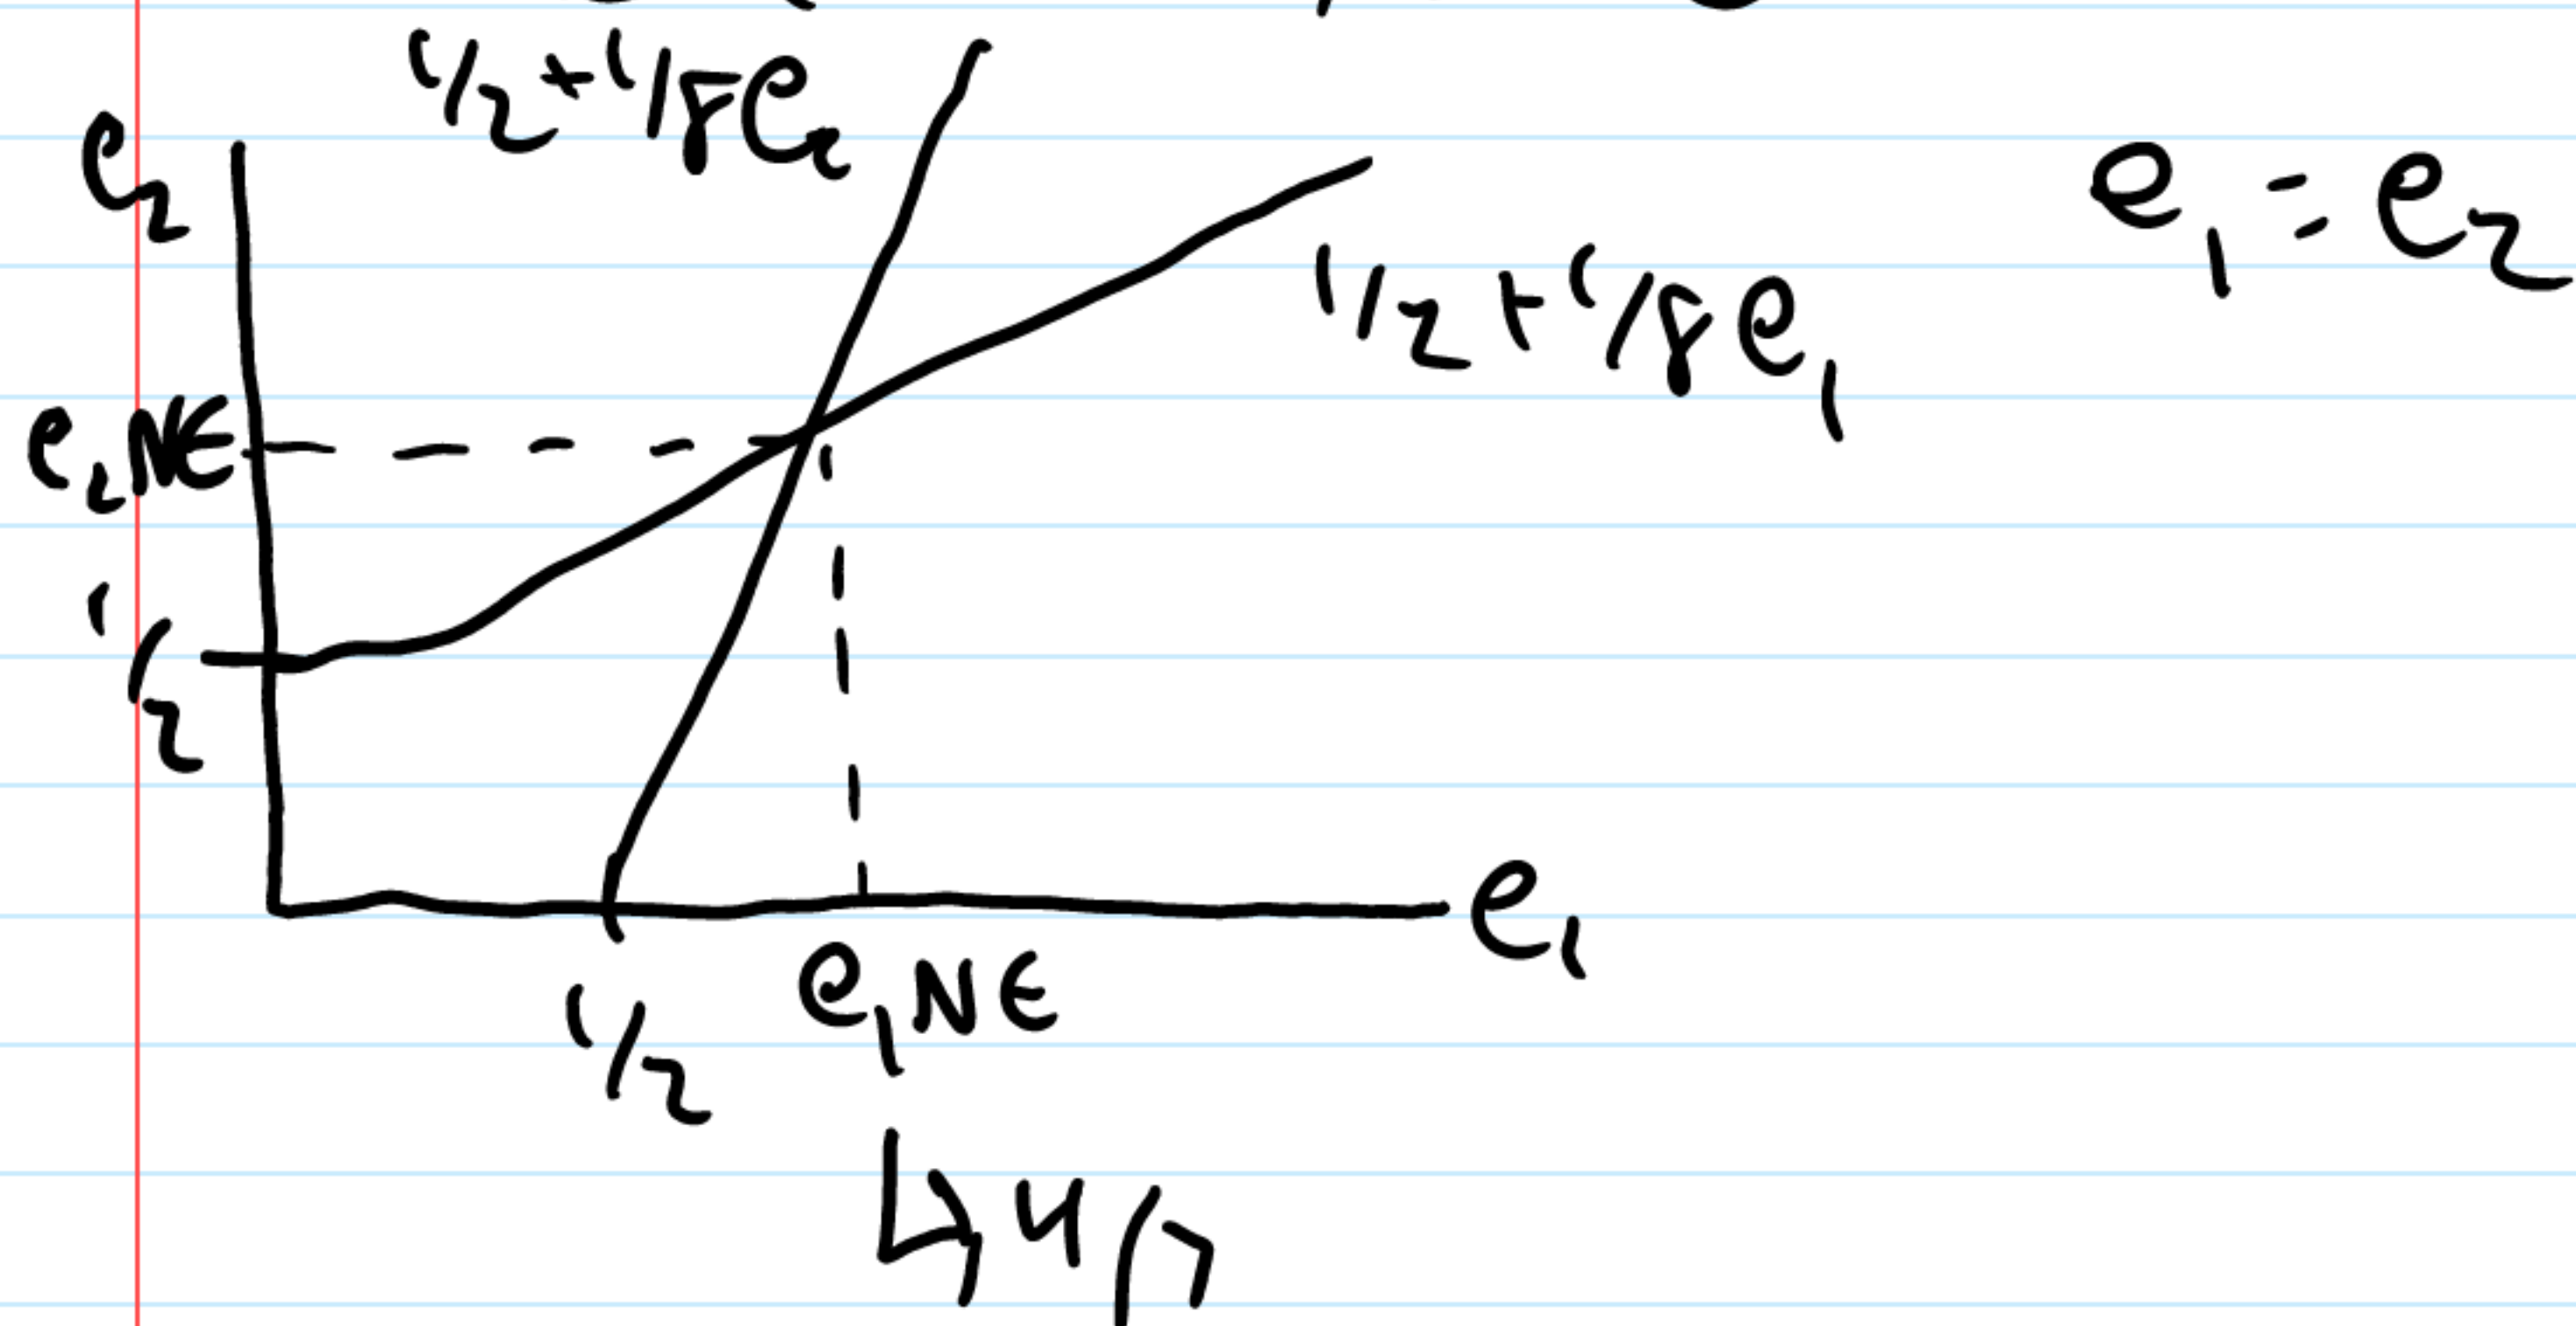 1/2+1/8e₂
e₂
e₁=e₂
1/2+1/8e₁
e₂NE
1/2
e₁
1/2 e₁NE
↳ 4/7